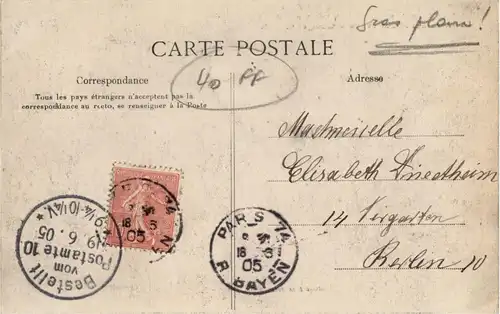 Gros plan!
CARTE POSTALE
40 FF
Correspondance
Tous les pays étrangers n'acceptent pas la
correspondance au recto, se renseigner à la Poste
Adresse
Mademoiselle
Elisabeth
14
Berlin 10
PARIS 74
18 -6
05
R. BAYEN
74
18
05
Bestellt
vom
Postamte 10
19. 6. 05
9¼-10¼V.